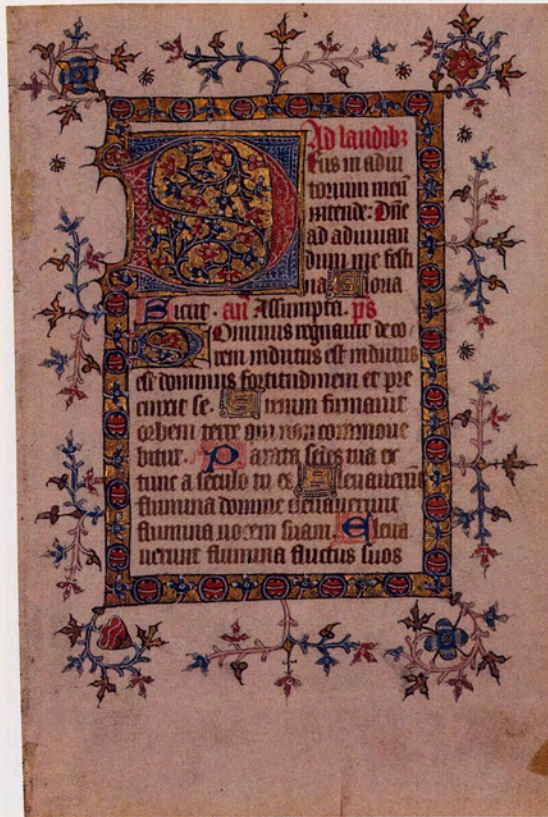 Ad laudibꝫ
Deus in adiu
torium meū
intende: Dn̄e
ad adiuuan
dum me festi
na Gloria
Sicut. an̄ Assumpta. ps
Dominus regnauit deco
rem indutus est indutus
est dominus fortitudinem et pre
cinxit se. Etenim firmauit
orbem terre qui non commoue
bitur. Parata sedes tua ex
tunc a seculo tu es Eleuauerunt
flumina domine eleuauerunt
flumina uocem suam. Eleua
uerunt flumina fluctus suos